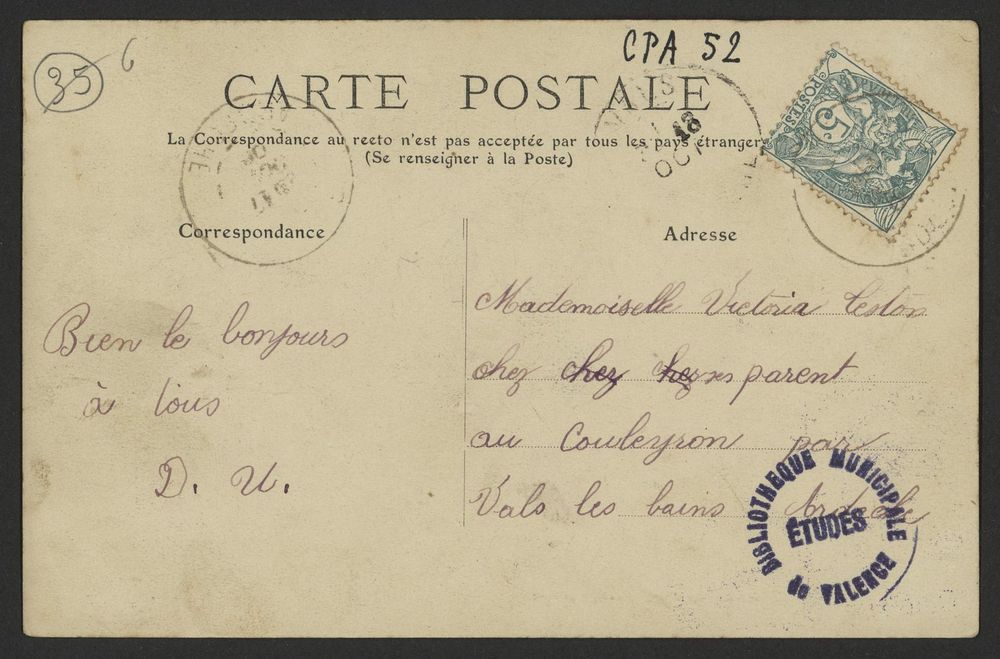 35
6
CPA 52
CARTE POSTALE
La Correspondance au recto n'est pas acceptée par tous les pays étrangers
(Se renseigner à la Poste)
18
OCT
POSTES
5
Correspondance
Adresse
Bien le bonjours
à tous
D. U.
Mademoiselle Victoria Teston
chez chez ses parent
au Couleyron par
Vals les bains Ardèche
BIBLIOTHEQUE MUNICIPALE
ÉTUDES
de VALENCE